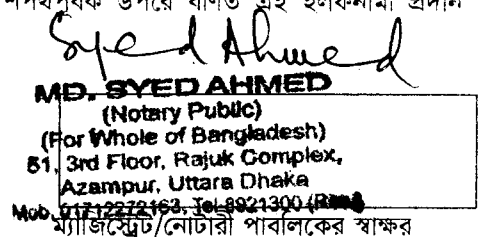 শপথপূর্বক উপরে বর্ণিত এই হলফনামা প্রদান
Syed Ahmed
MD. SYED AHMED
(Notary Public)
(For Whole of Bangladesh)
51, 3rd Floor, Rajuk Complex,
Azampur, Uttara Dhaka
Mob. 01712272163, Tel-8921300
ম্যাজিস্ট্রেট/নোটারী পাবলিকের স্বাক্ষর